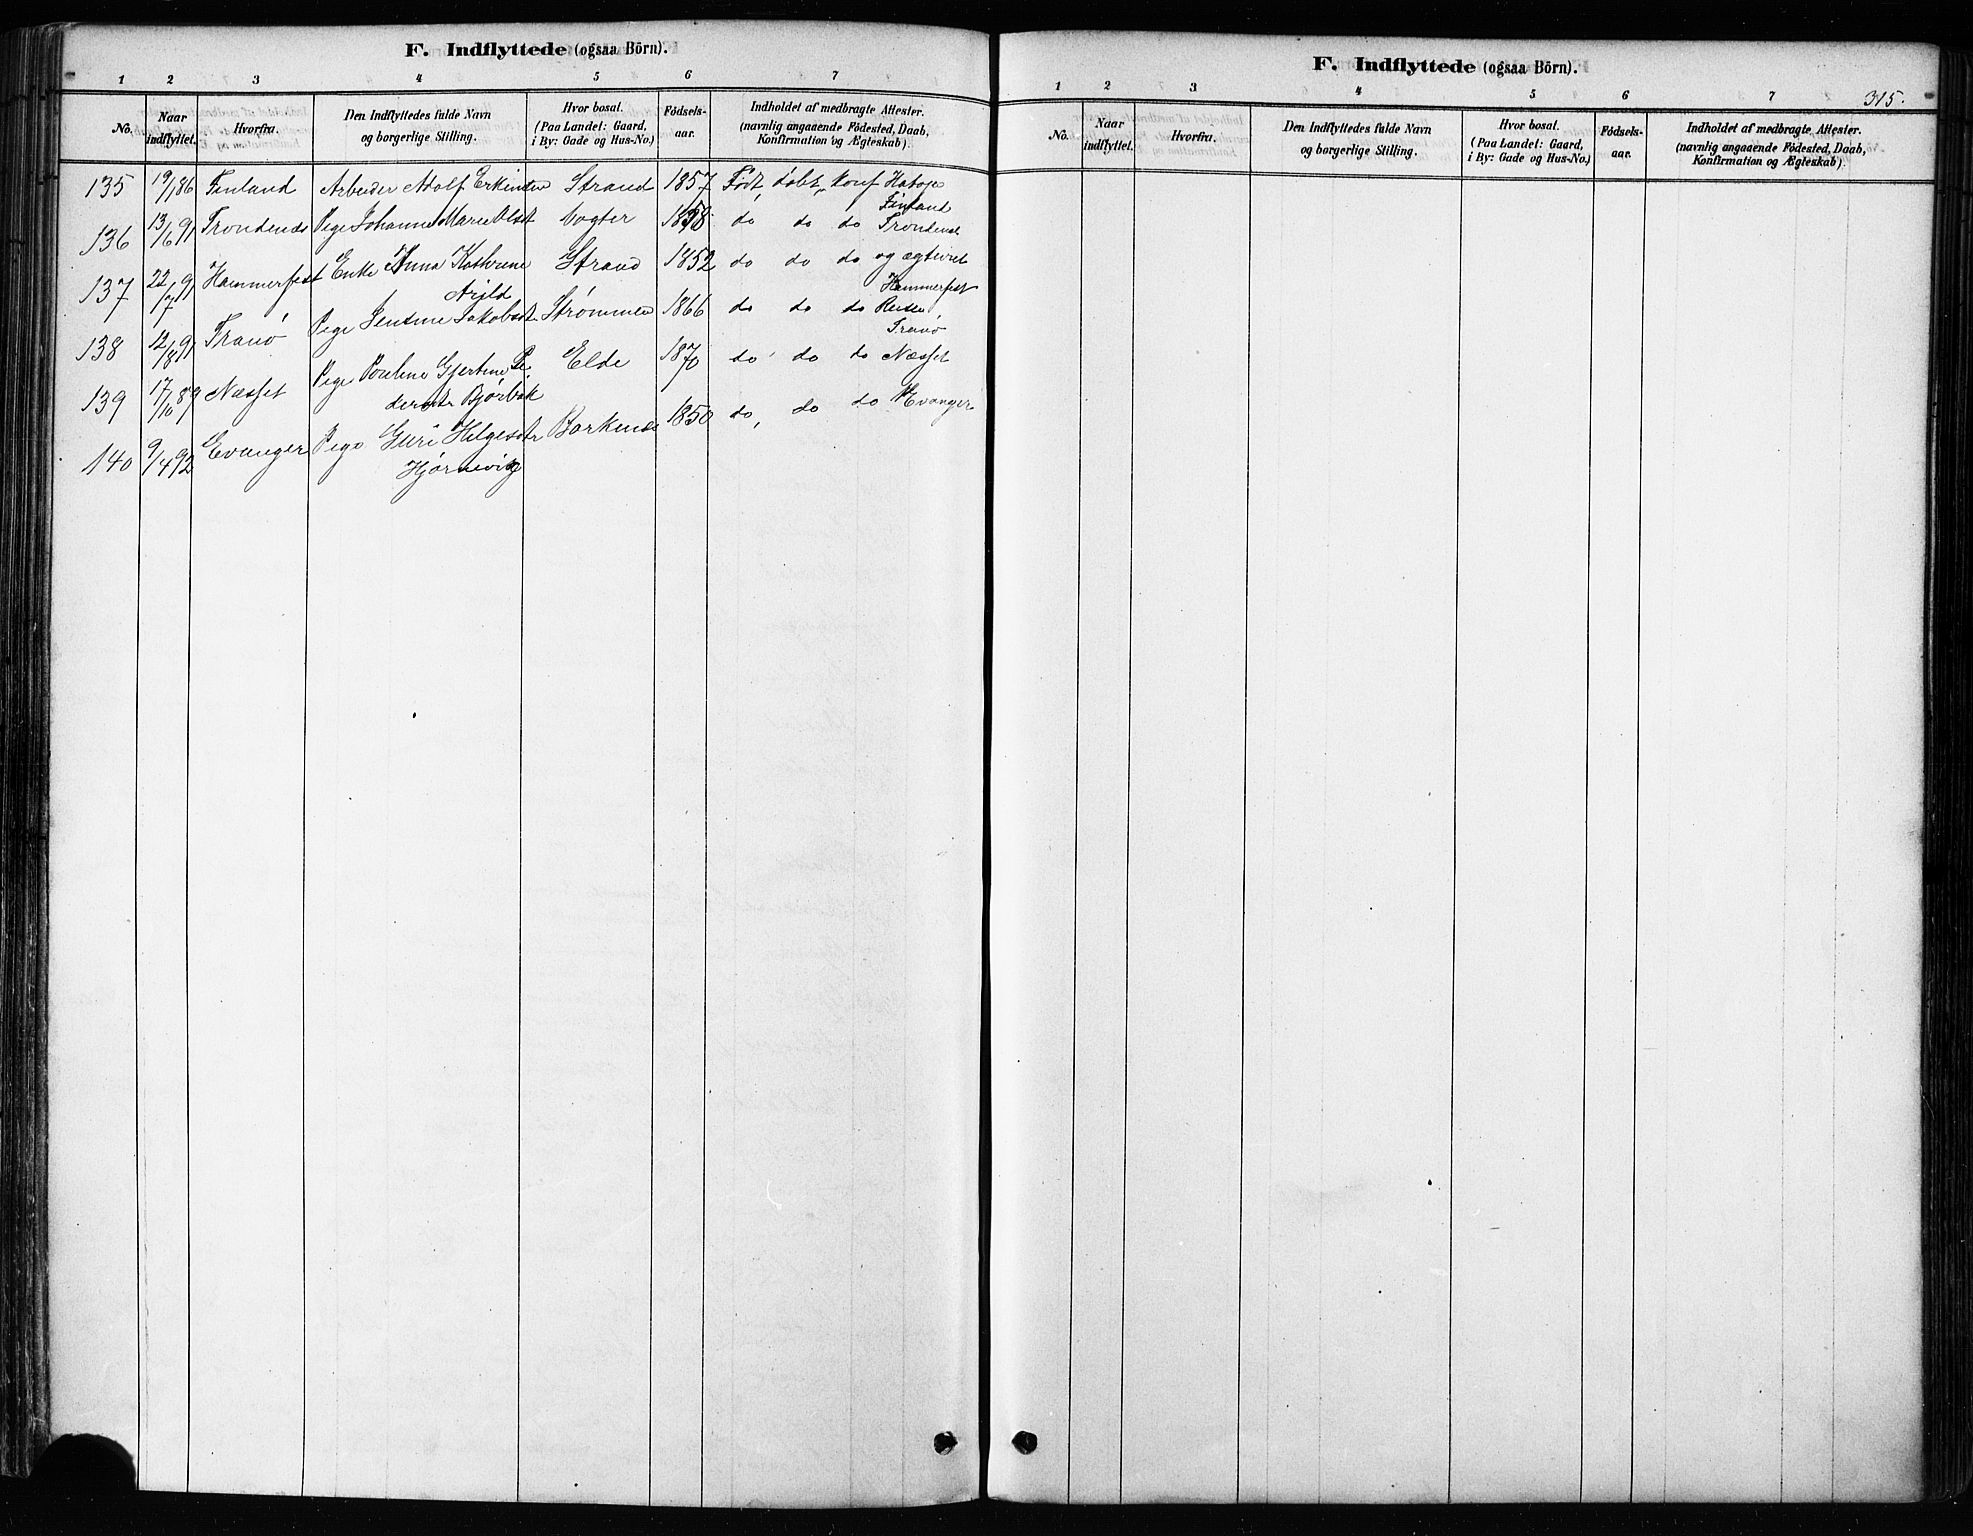 F. Indflyttede (ogsaa Börn).
1 2 3 4 5 6 7
No. Naar indflyttet. Hvorfra. Den Indflyttedes fulde Navn og borgerlige Stilling. Hvor bosat. (Paa Landet: Gaard, i By: Gade og Hus-No.) Födsels-aar. Indholdet af medbragte Attester. (navnlig angaaende Födested, Daab, Konfirmation og Ægteskab).
135 19/1 86 Finland Arbeider Adolf Strand 1857 Født, døbt, konf
Finland
136 13/6 91 Trondenes Pige Johanne Marie Olsdt Vogter do do do Trondenes
137 22/7 91 Hammerfest Enke Anna Kathrine Strand 1852 do do do og ægteviet
Arild Hammerfest
138 12/8 91 Tranø Pige Jensine Jakobsdt Strømmen 1866 do do do
Tranø
139 17/10 89 Næsset Pige Pouline Gjertine Pe Elde 1870 do do do Næsset
dersdtr Bjørbæk
140 9/4 92 Evanger Pige Guri Helgesdtr Borkenes 1850 do, do do Evanger
Hjørnevig
F. Indflyttede (ogsaa Börn).
315.
1 2 3 4 5 6 7
No. Naar indflyttet. Hvorfra. Den Indflyttedes fulde Navn og borgerlige Stilling. Hvor bosat. (Paa Landet: Gaard, i By: Gade og Hus-No.) Födsels-aar. Indholdet af medbragte Attester. (navnlig angaaende Födested, Daab, Konfirmation og Ægteskab).